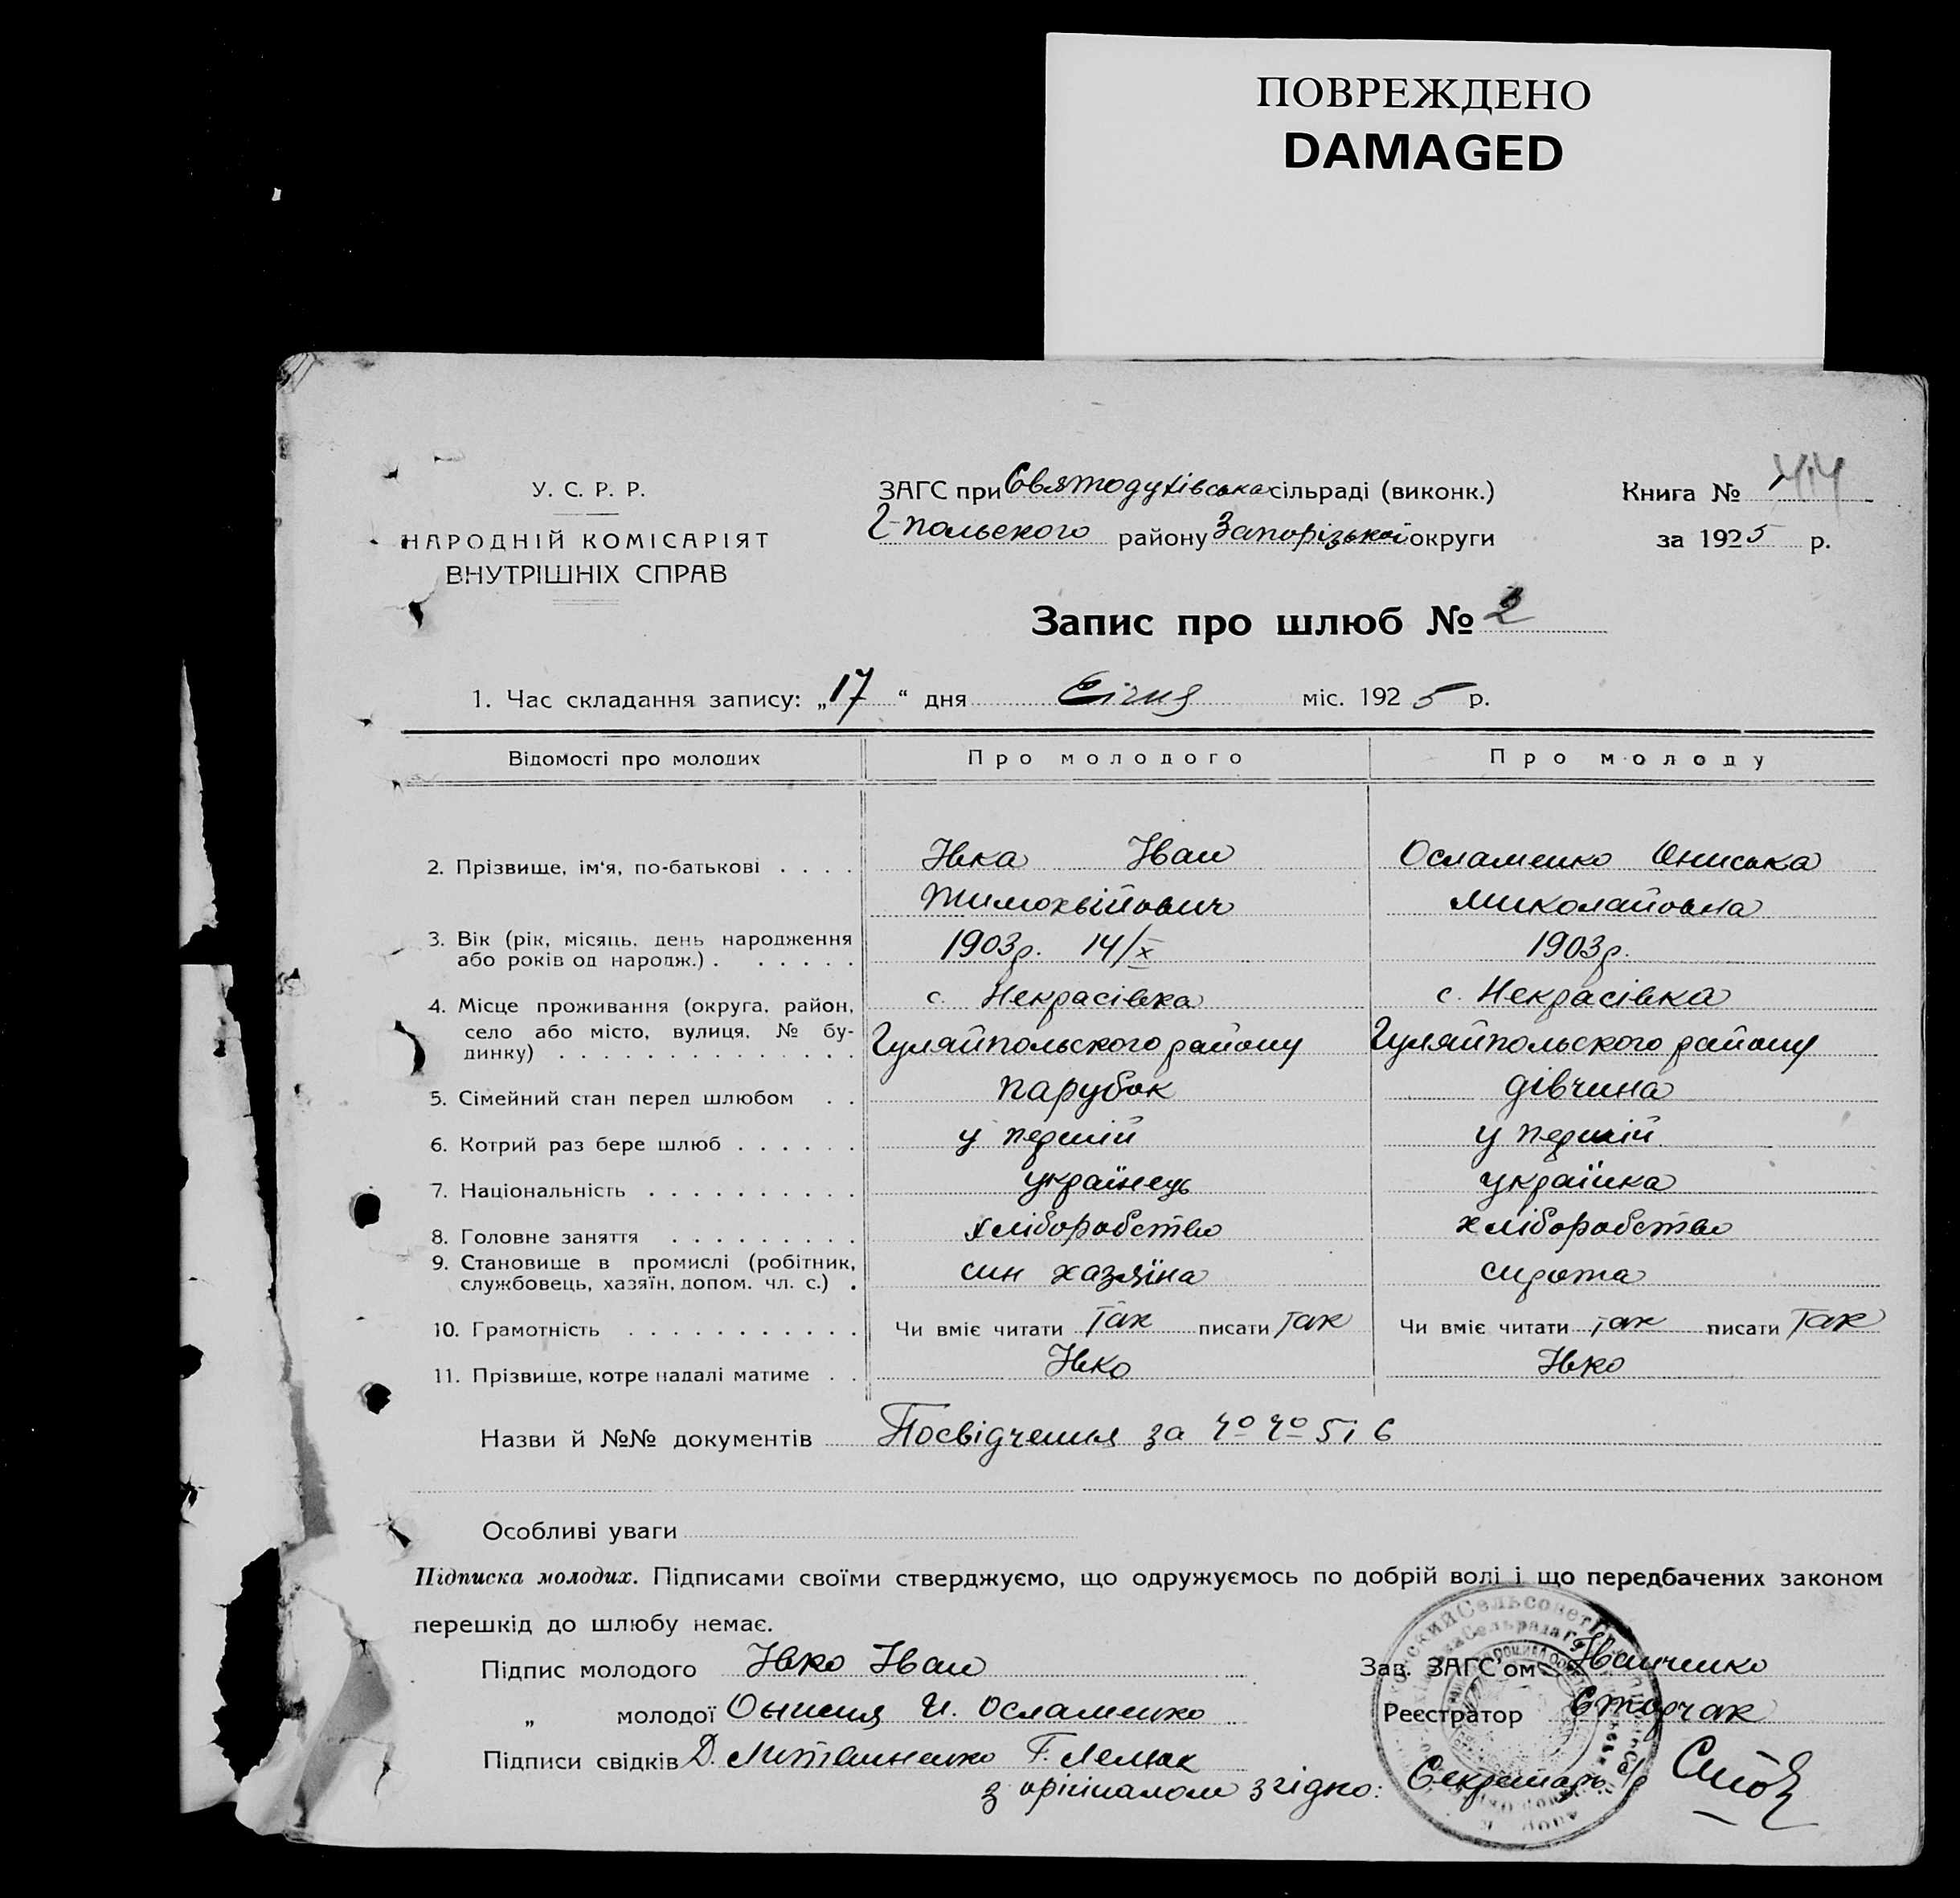 ПОВРЕЖДЕНО
DAMAGED
У. С. Р. Р.
НАРОДНІЙ КОМІСАРІЯТ
ВНУТРІШНІХ СПРАВ
ЗАГС при Святодухівська сільраді (виконк.)
Г-польского району Запорізької округи
Книга №
за 1925 р.
Запис про шлюб № 2
1. Час складання запису: „17“ дня Січня міс. 1925 р.
Відомості про молодих Про молодого Про молоду
2. Прізвище, ім'я, по-батькові . . . . Івка Іван Осламенко Ониська
Тимохвійович Миколайовна
3. Вік (рік, місяць, день народження 1903р. 14/X 1903р.
або років од народж.) . . . . . .
4. Місце проживання (округа, район, с. Некрасівка с. Некрасівка
село або місто, вулиця, № бу-
динку) . . . . . . . . . . . . . . Гуляйпольского району Гуляйпольского району
5. Сімейний стан перед шлюбом . . парубок дівчина
6. Котрий раз бере шлюб . . . . . . у первий у первий
7. Національність . . . . . . . . . . українець українка
8. Головне заняття . . . . . . . . . хліборобство хліборобство
9. Становище в промислі (робітник,
службовець, хазяїн, допом. чл. с.) . син хазяїна сирота
10. Грамотність . . . . . . . . . . . Чи вміє читати так писати так Чи вміє читати так писати так
11. Прізвище, котре надалі матиме . . Івко Івко
Назви й №№ документів Посвідчення за №№ 5 і 6
Особливі уваги
Підписка молодих. Підписами своїми стверджуємо, що одружуємось по добрій волі і що передбачених законом
перешкід до шлюбу немає.
Підпис молодого Івко Іван
Зав. ЗАГС'ом Іванченко
„ молодої Осламенко
Реєстратор Сторчак
Підписи свідків Д. Г. Лемак
з оригіналом згідно: Секретарь